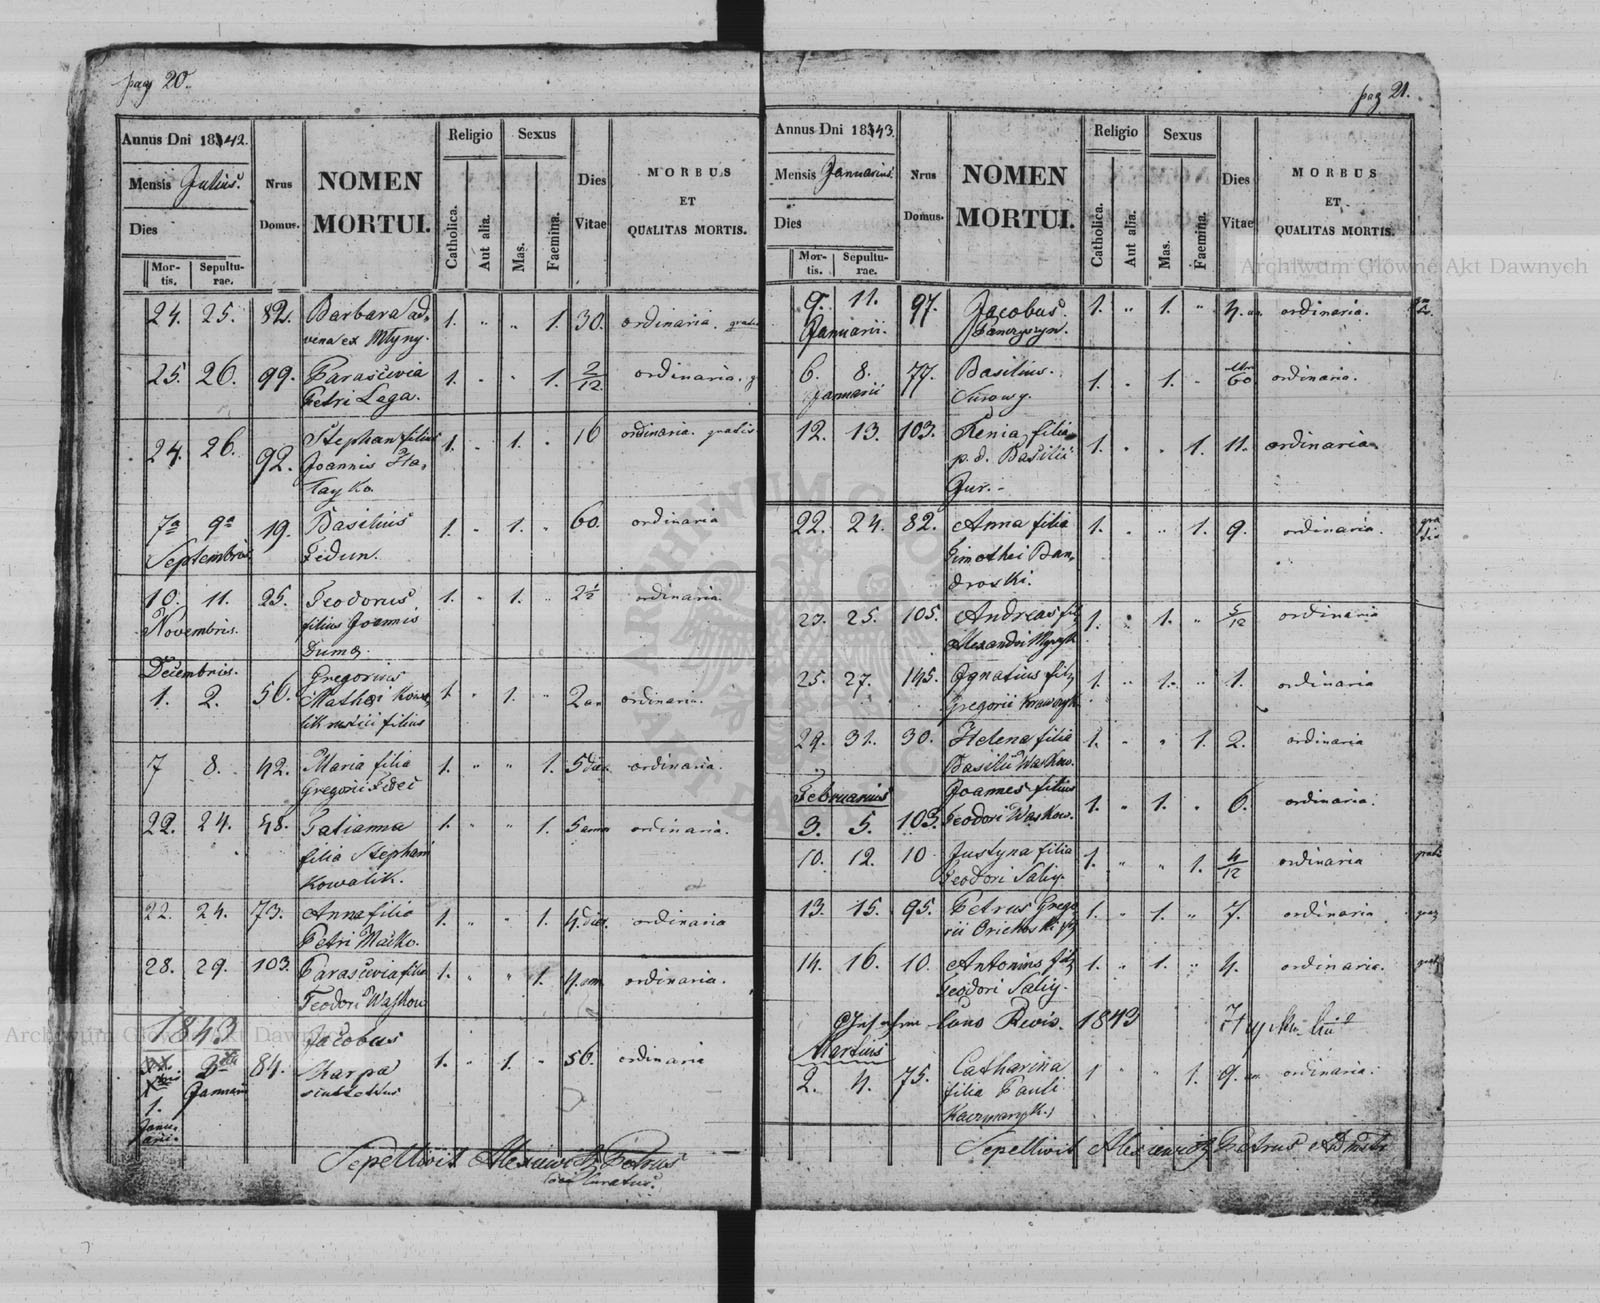 pag 20.
Annus Dni 1842.
Mensis Julius.
Dies
Mortis.
Sepulturae.
Nrus Domus.
NOMEN MORTUI.
Religio
Catholica.
Aut alia.
Sexus
Mas.
Faemina.
Dies Vitae
MORBUS
ET
QUALITAS MORTIS.
24. 25. 82. Barbara ad- 1. " " 1. 30. ordinaria. gratis
vena ex Młyny.
25. 26. 99. Parascivia 1. " " 1. 2/12 ordinaria.
Petri Laga.
24. 26. 92. Stephan filius 1. " 1. " 16 ordinaria. gratis
Joannis
7a 9a 19. Basilius 1. " 1. " 60. ordinaria
Septembris Fedun.
10. 11. 25. Teodorus 1. " 1. " 2½ ordinaria.
Novembris. filius Joannis
Duma.
Decembris. Gregorius
1. 2. 56. Mathei 1. " 1. " 2 an ordinaria.
rustici filius
7 8. 42. Maria filia 1. " " 1. 5 dies ordinaria.
Gregorii Fedei
22. 24. 48. Tatianna 1. " " 1. 5 ann ordinaria.
filia Stephani
Kowalik.
22. 24. 73. Anna filia 1. " " 1. 4 dies. ordinaria
Petri Maćko.
28. 29. 103. Parascivia filia 1. " " 1. 4. ann ordinaria.
Teodori Waskow
1843 Jacobus
84. Karpa 1. " 1. " 56. ordinaria
Januarii
1.
Januarii.
Sepellivit Alexiewicz Petrus
Curatus.
pag 21.
Annus Dni 1843.
Mensis Januarius.
Dies
Mortis.
Sepulturae.
Nrus Domus.
NOMEN MORTUI.
Religio
Catholica.
Aut alia.
Sexus
Mas.
Faemina.
Dies Vitae
MORBUS
ET
QUALITAS MORTIS.
9. 11. 97. Jacobus 1. " 1. " 4. an ordinaria.
Januarii.
6. 8. 77. Basilius. 1. " 1. " 60 ordinaria.
Januarii Surowy.
12. 13. 103. Xenia filia 1. " " 1. 11. ordinaria
p. d. Basilii
Jur.
22. 24. 82. Anna filia 1. " " 1. 9. ordinaria. gratis
Timothei Ban-
droski.
23. 25. 105. Andreas fil 1. " 1. " 5/12 ordinaria
Alexandri
25. 27. 145. Ignatius fil 1. " 1. " 1. ordinaria
Gregorii Krawczyk
29. 31. 30. Helena filia 1. " " 1. 2. ordinaria
Basilii Waskow.
Februarius Joannes filius
3. 5. 103. Teodori Waskow. 1. " 1. " 6. ordinaria.
10. 12. 10 Justyna filia 1. " " 1. 4/12 ordinaria gratis
Teodori Saliy.
13. 15. 95. Petrus Grego- 1. " 1. " 7. ordinaria
rii
14. 16. 10. Antonius fil 1. " 1. " 4. ordinaria.
Teodori Saliy.
Revis. 1843
Martius
2. 4. 75. Catharina 1 " " 1. 9. an ordinaria.
filia Pauli
Kaczmaryk
Sepellivit Alexiewicz Petrus
Archiwum Główne Akt Dawnych
Archiwum Główne Akt Dawnych